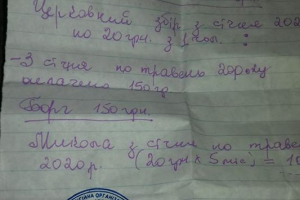 Церковний збір з січня 202
по 20 грн. з 1 чол. :
- З січня по травень 20 року
оплачено 150 г
Борг 150 грн.
Микола з січня по траве
2020 р. (20 грн. х 5 міс) = 10